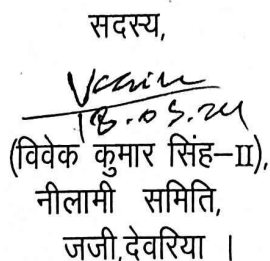 सदस्य,
18.05.24
(विवेक कुमार सिंह–II),
नीलामी समिति,
जजी,देवरिया ।